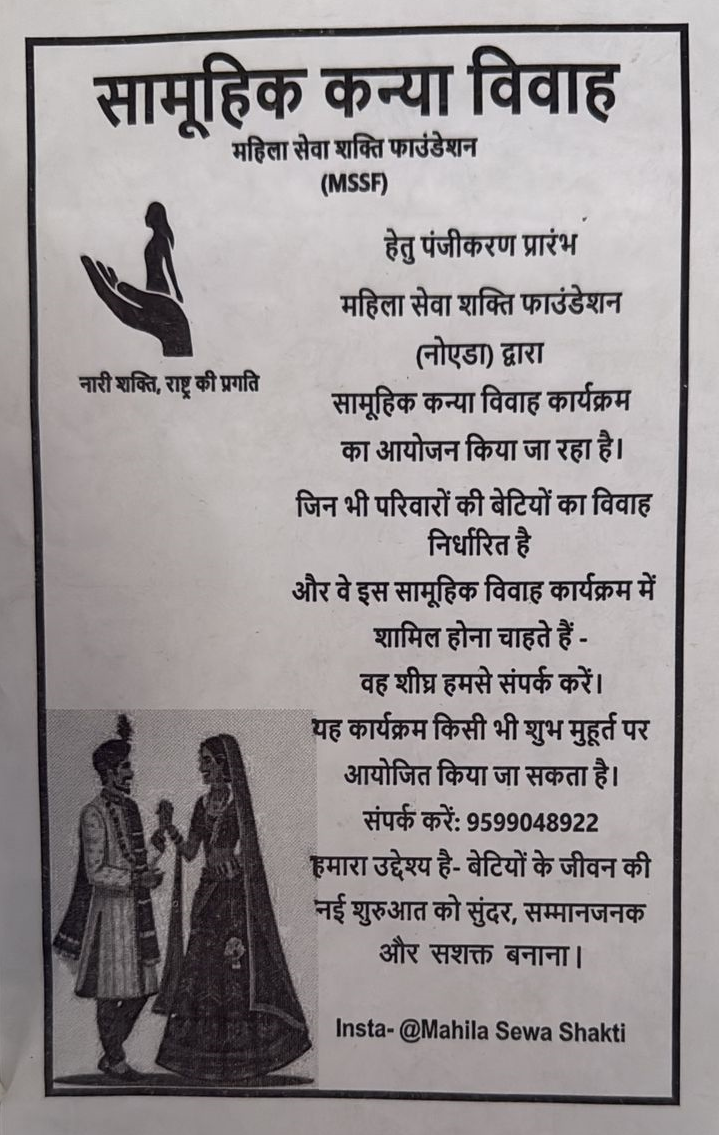 सामूहिक कन्या विवाह
महिला सेवा शक्ति फाउंडेशन
(MSSF)
नारी शक्ति, राष्ट्र की प्रगति
हेतु पंजीकरण प्रारंभ
महिला सेवा शक्ति फाउंडेशन
(नोएडा) द्वारा
सामूहिक कन्या विवाह कार्यक्रम
का आयोजन किया जा रहा है।
जिन भी परिवारों की बेटियों का विवाह
निर्धारित है
और वे इस सामूहिक विवाह कार्यक्रम में
शामिल होना चाहते हैं -
वह शीघ्र हमसे संपर्क करें।
यह कार्यक्रम किसी भी शुभ मुहूर्त पर
आयोजित किया जा सकता है।
संपर्क करें: 9599048922
हमारा उद्देश्य है- बेटियों के जीवन की
नई शुरुआत को सुंदर, सम्मानजनक
और सशक्त बनाना।
Insta- @Mahila Sewa Shakti